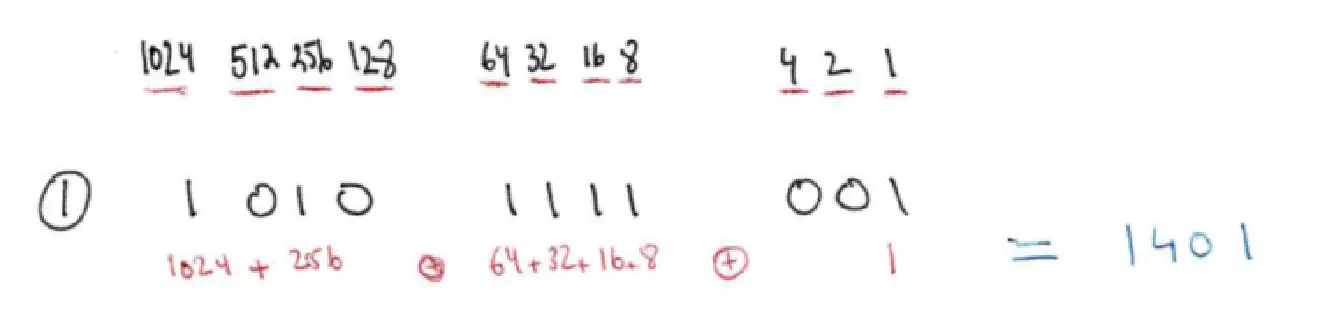 1024 512 256 128 64 32 16 8 4 2 1
① 1 0 1 0 1 1 1 1 0 0 1
1024 + 256 ⊕ 64+32+16+8 ⊕ 1 = 1401